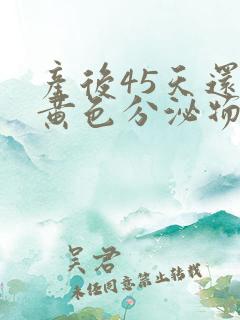 產後45天還
黃色分泌物
吴君
未经同意禁止转载